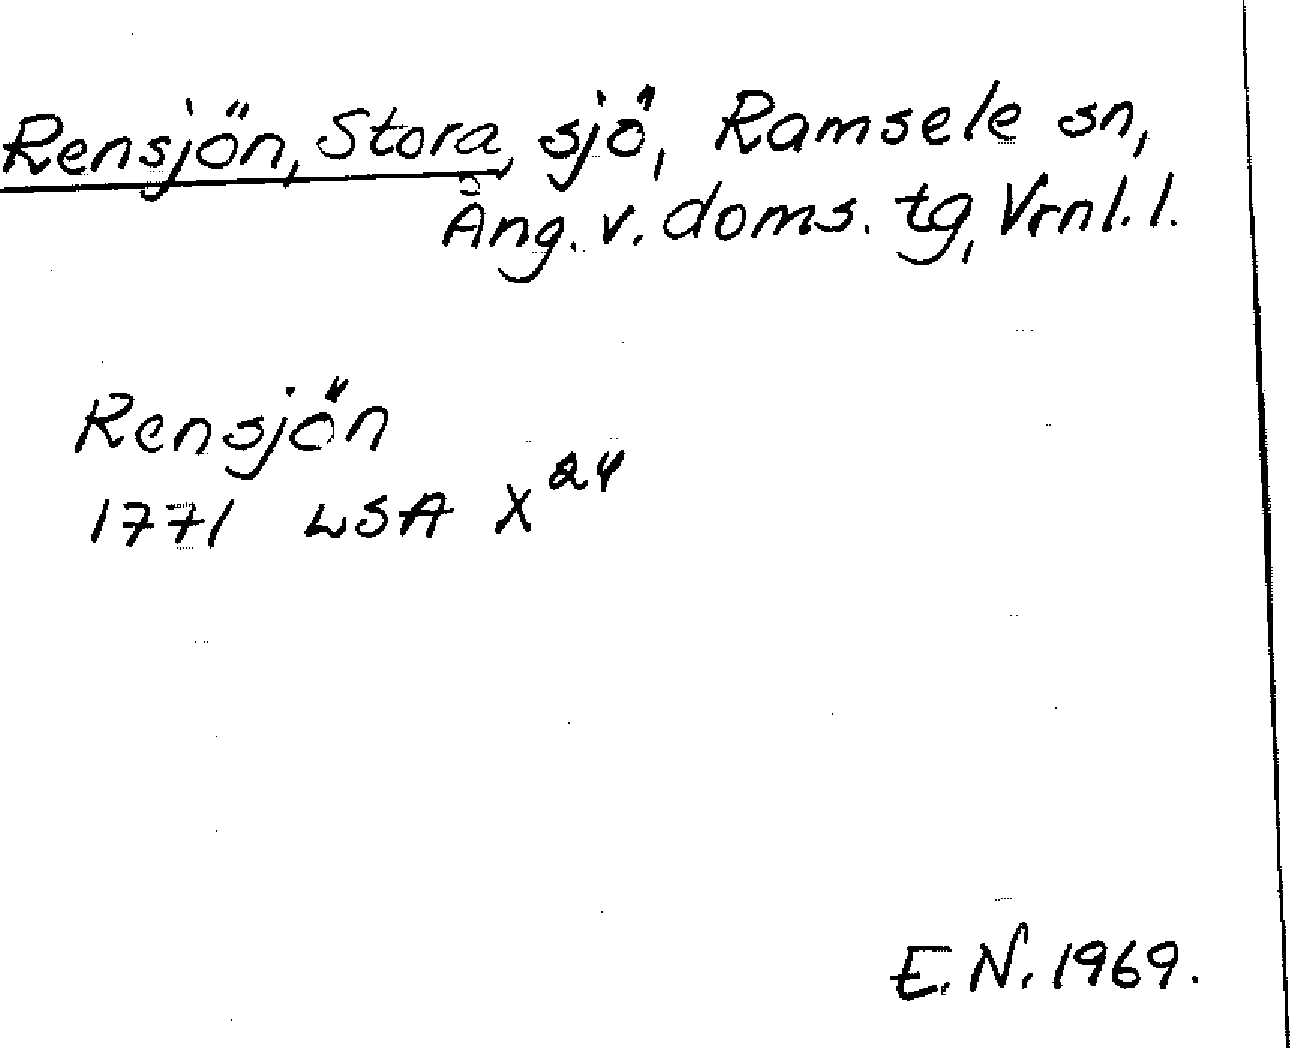 Rensjön, Stora, sjö, Ramsele sn,
Ång. v. doms. tg, Vrnl. l.
Rensjön
1771 LSA X²⁴
E. N. 1969.